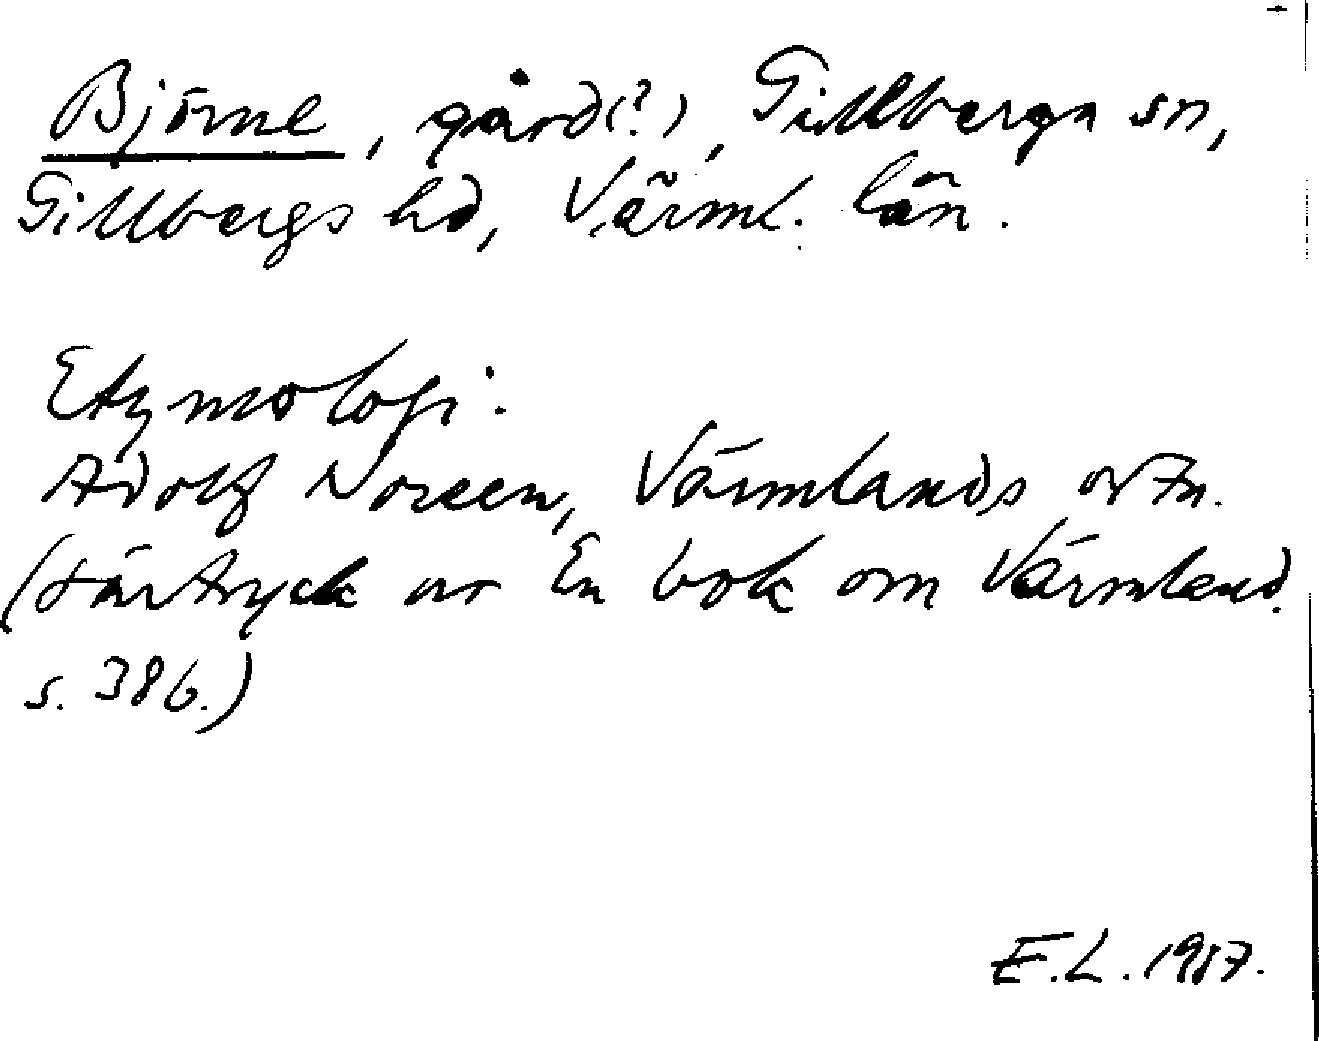 Björne, gård(?), Gillberga sn,
Gillbergs hd, Värml. län.
Etymologi:
Adolf Noreen, Värmlands ortn.
(särtryck ur En bok om Värmland.
s. 386.)
E.L. 1987.